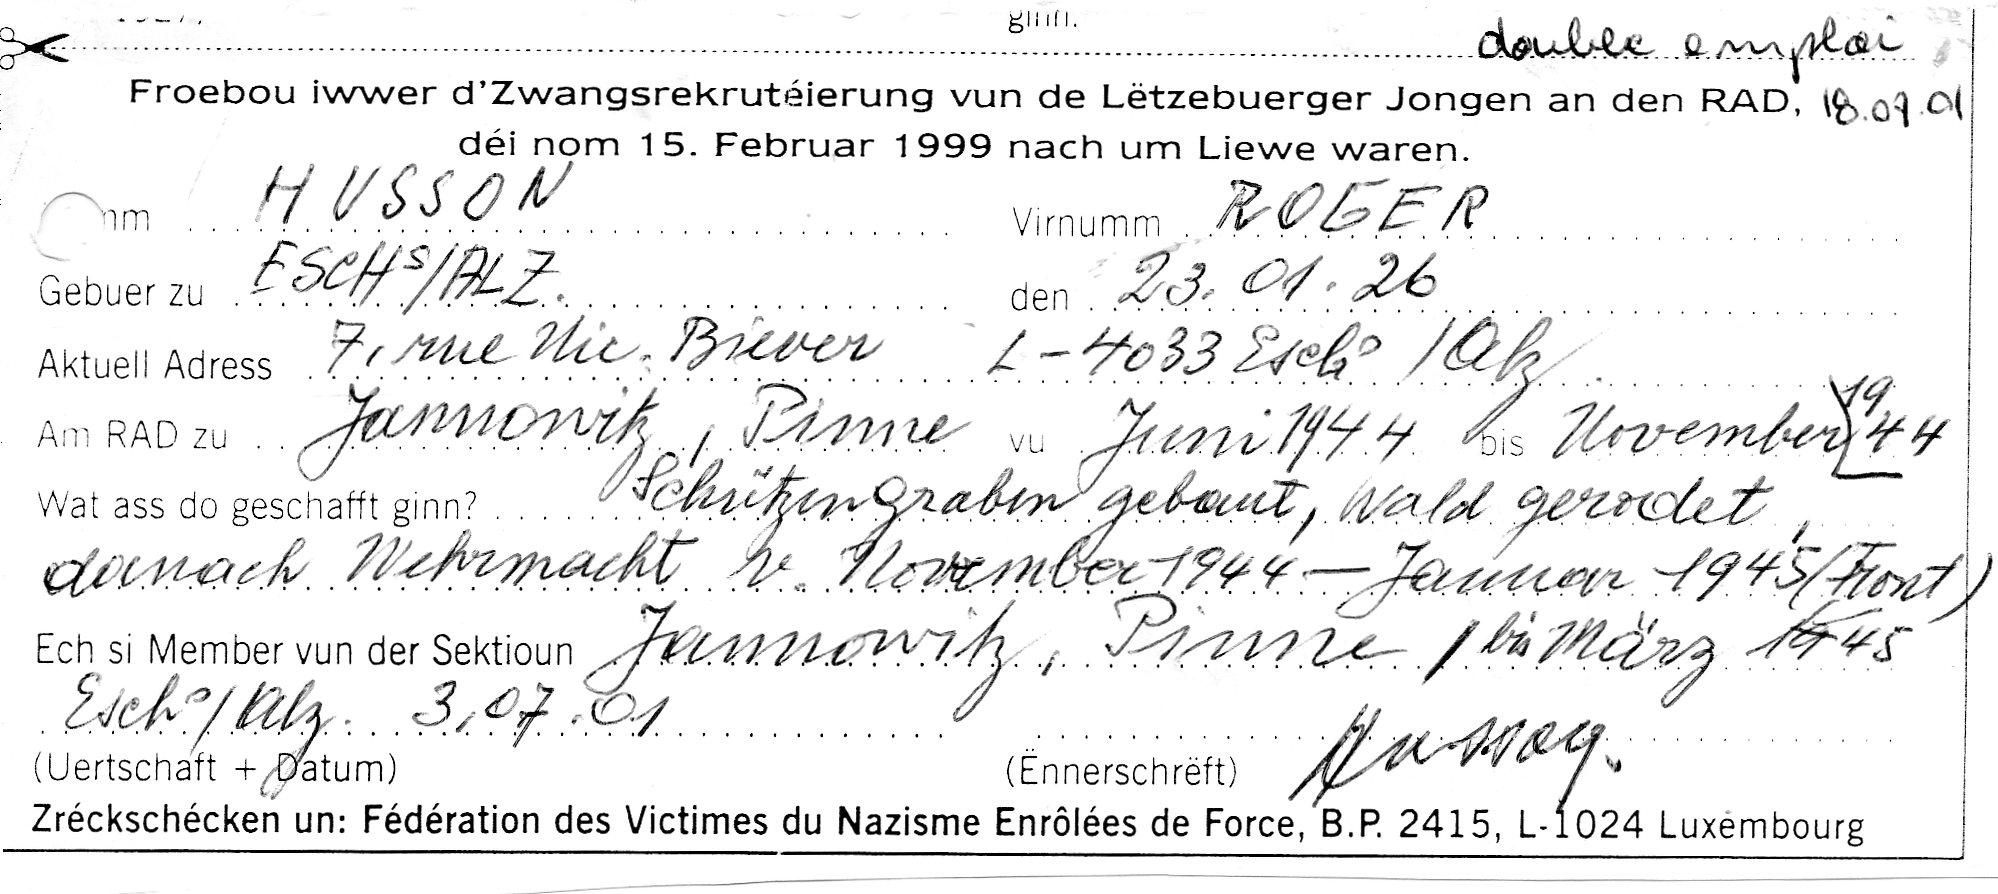 ginn.
double emploi
Froebou iwwer d'Zwangsrekrutéierung vun de Lëtzebuerger Jongen an den RAD, 18.07.01
déi nom 15. Februar 1999 nach um Liewe waren.
HUSSON Virnumm ROGER
Gebuer zu ESCH s/ALZ. den 23.01.26
Aktuell Adress 7, rue Nic. Biever L-4033 Esch s/Alz
Am RAD zu Jannowitz, Pinne vu Juni 1944 bis November 1944
Wat ass do geschafft ginn? Schützengraben gebaut, Wald gerodet,
danach Wehrmacht v. November 1944 – Januar 1945 (Front)
Ech si Member vun der Sektioun Jannowitz, Pinne / bis März 1945
Esch s/Alz. 3.07.01
(Uertschaft + Datum) (Ënnerschrëft)
Zréckschécken un: Fédération des Victimes du Nazisme Enrôlées de Force, B.P. 2415, L-1024 Luxembourg